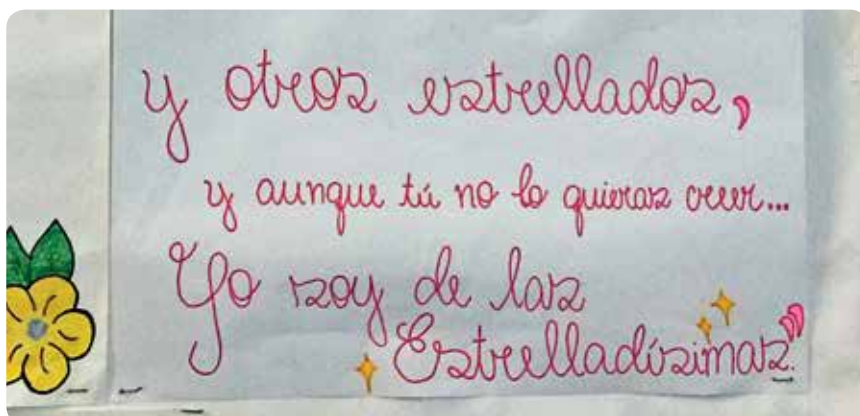 y otros estrellados,
y aunque tú no lo quieras creer...
Yo soy de las
Estrelladísimas."